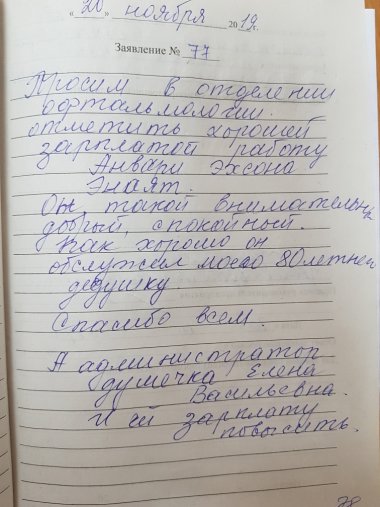 « 20 » ноября 2019г.
Заявление № 77
Просим в отделении
офтальмологии
отметить хорошей
зарплатой работу
Анвари Эхсона
Энаят.
Он такой внимательный
добрый, спокойный.
Как хорошо он
обслужил моего 80летнего
дедушку.
Спасибо всем.
А администратор
душечка Елена
Васильевна.
И ей зарплату
повысить.